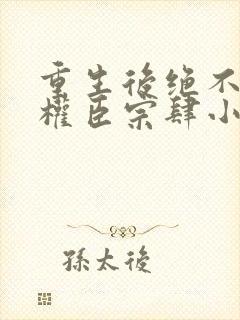 重生後绝不
權臣宗肆小
孫太後